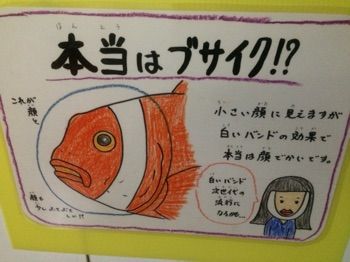 ほんとう
本当はブサイク!?
これが
顔と
かお
小さい顔に見えますが
白いバンドの効果で
本当は顔でかいです。
白いバンド
次世代の
流行に
なるかも…
顔も